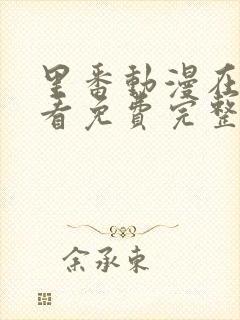 里番動漫在
看免費完整
余承東